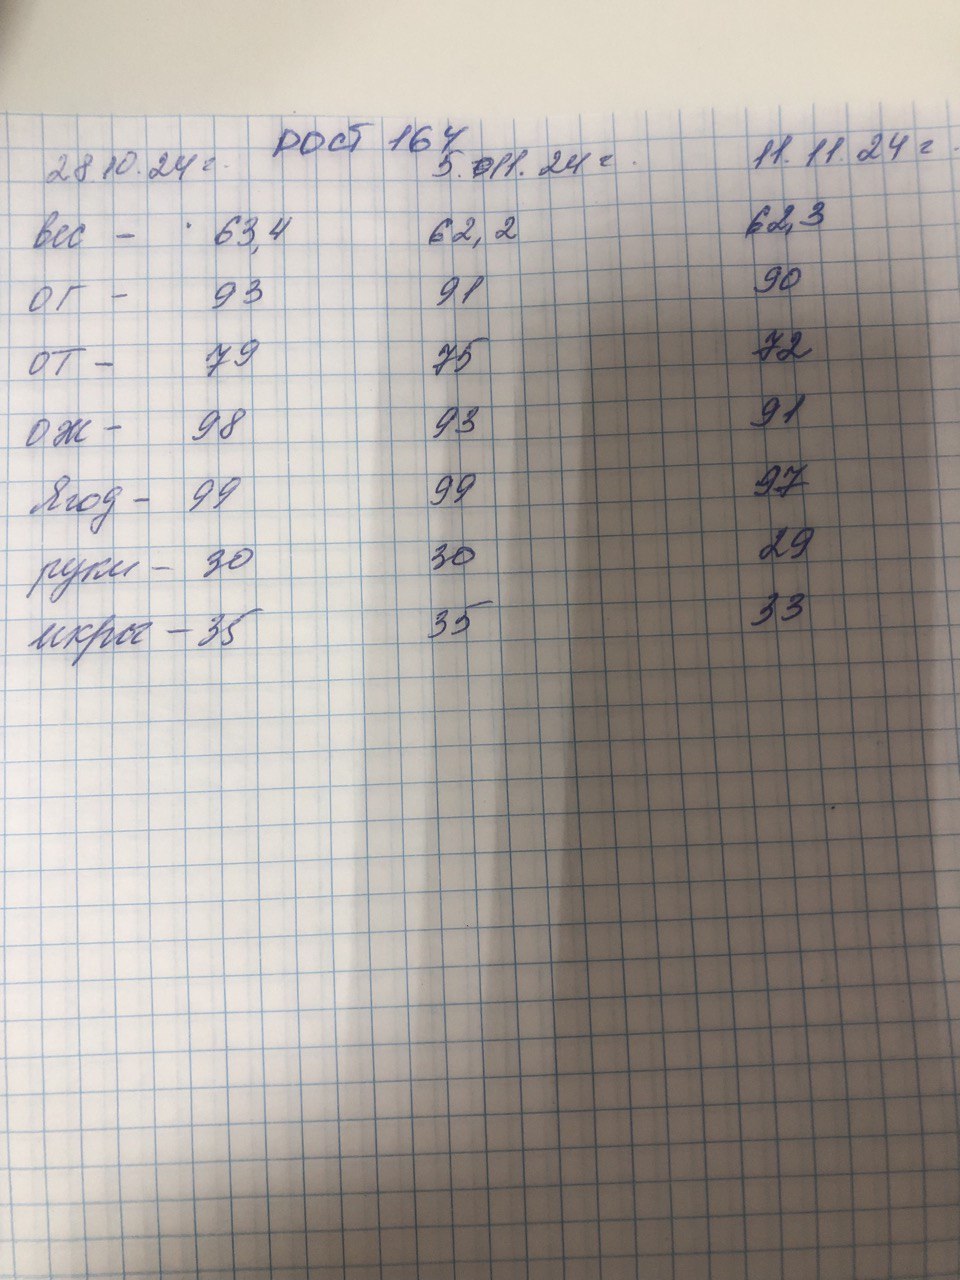 рост 164
28 10. 24 г. 5. 11. 24 г. 11. 11. 24 г.
Вес - 63,4 62,2 62,3
ОГ - 93 91 90
ОТ - 79 75 72
ОЖ - 98 93 91
Ягод - 99 99 97
руки - 30 30 29
икры - 35 35 33